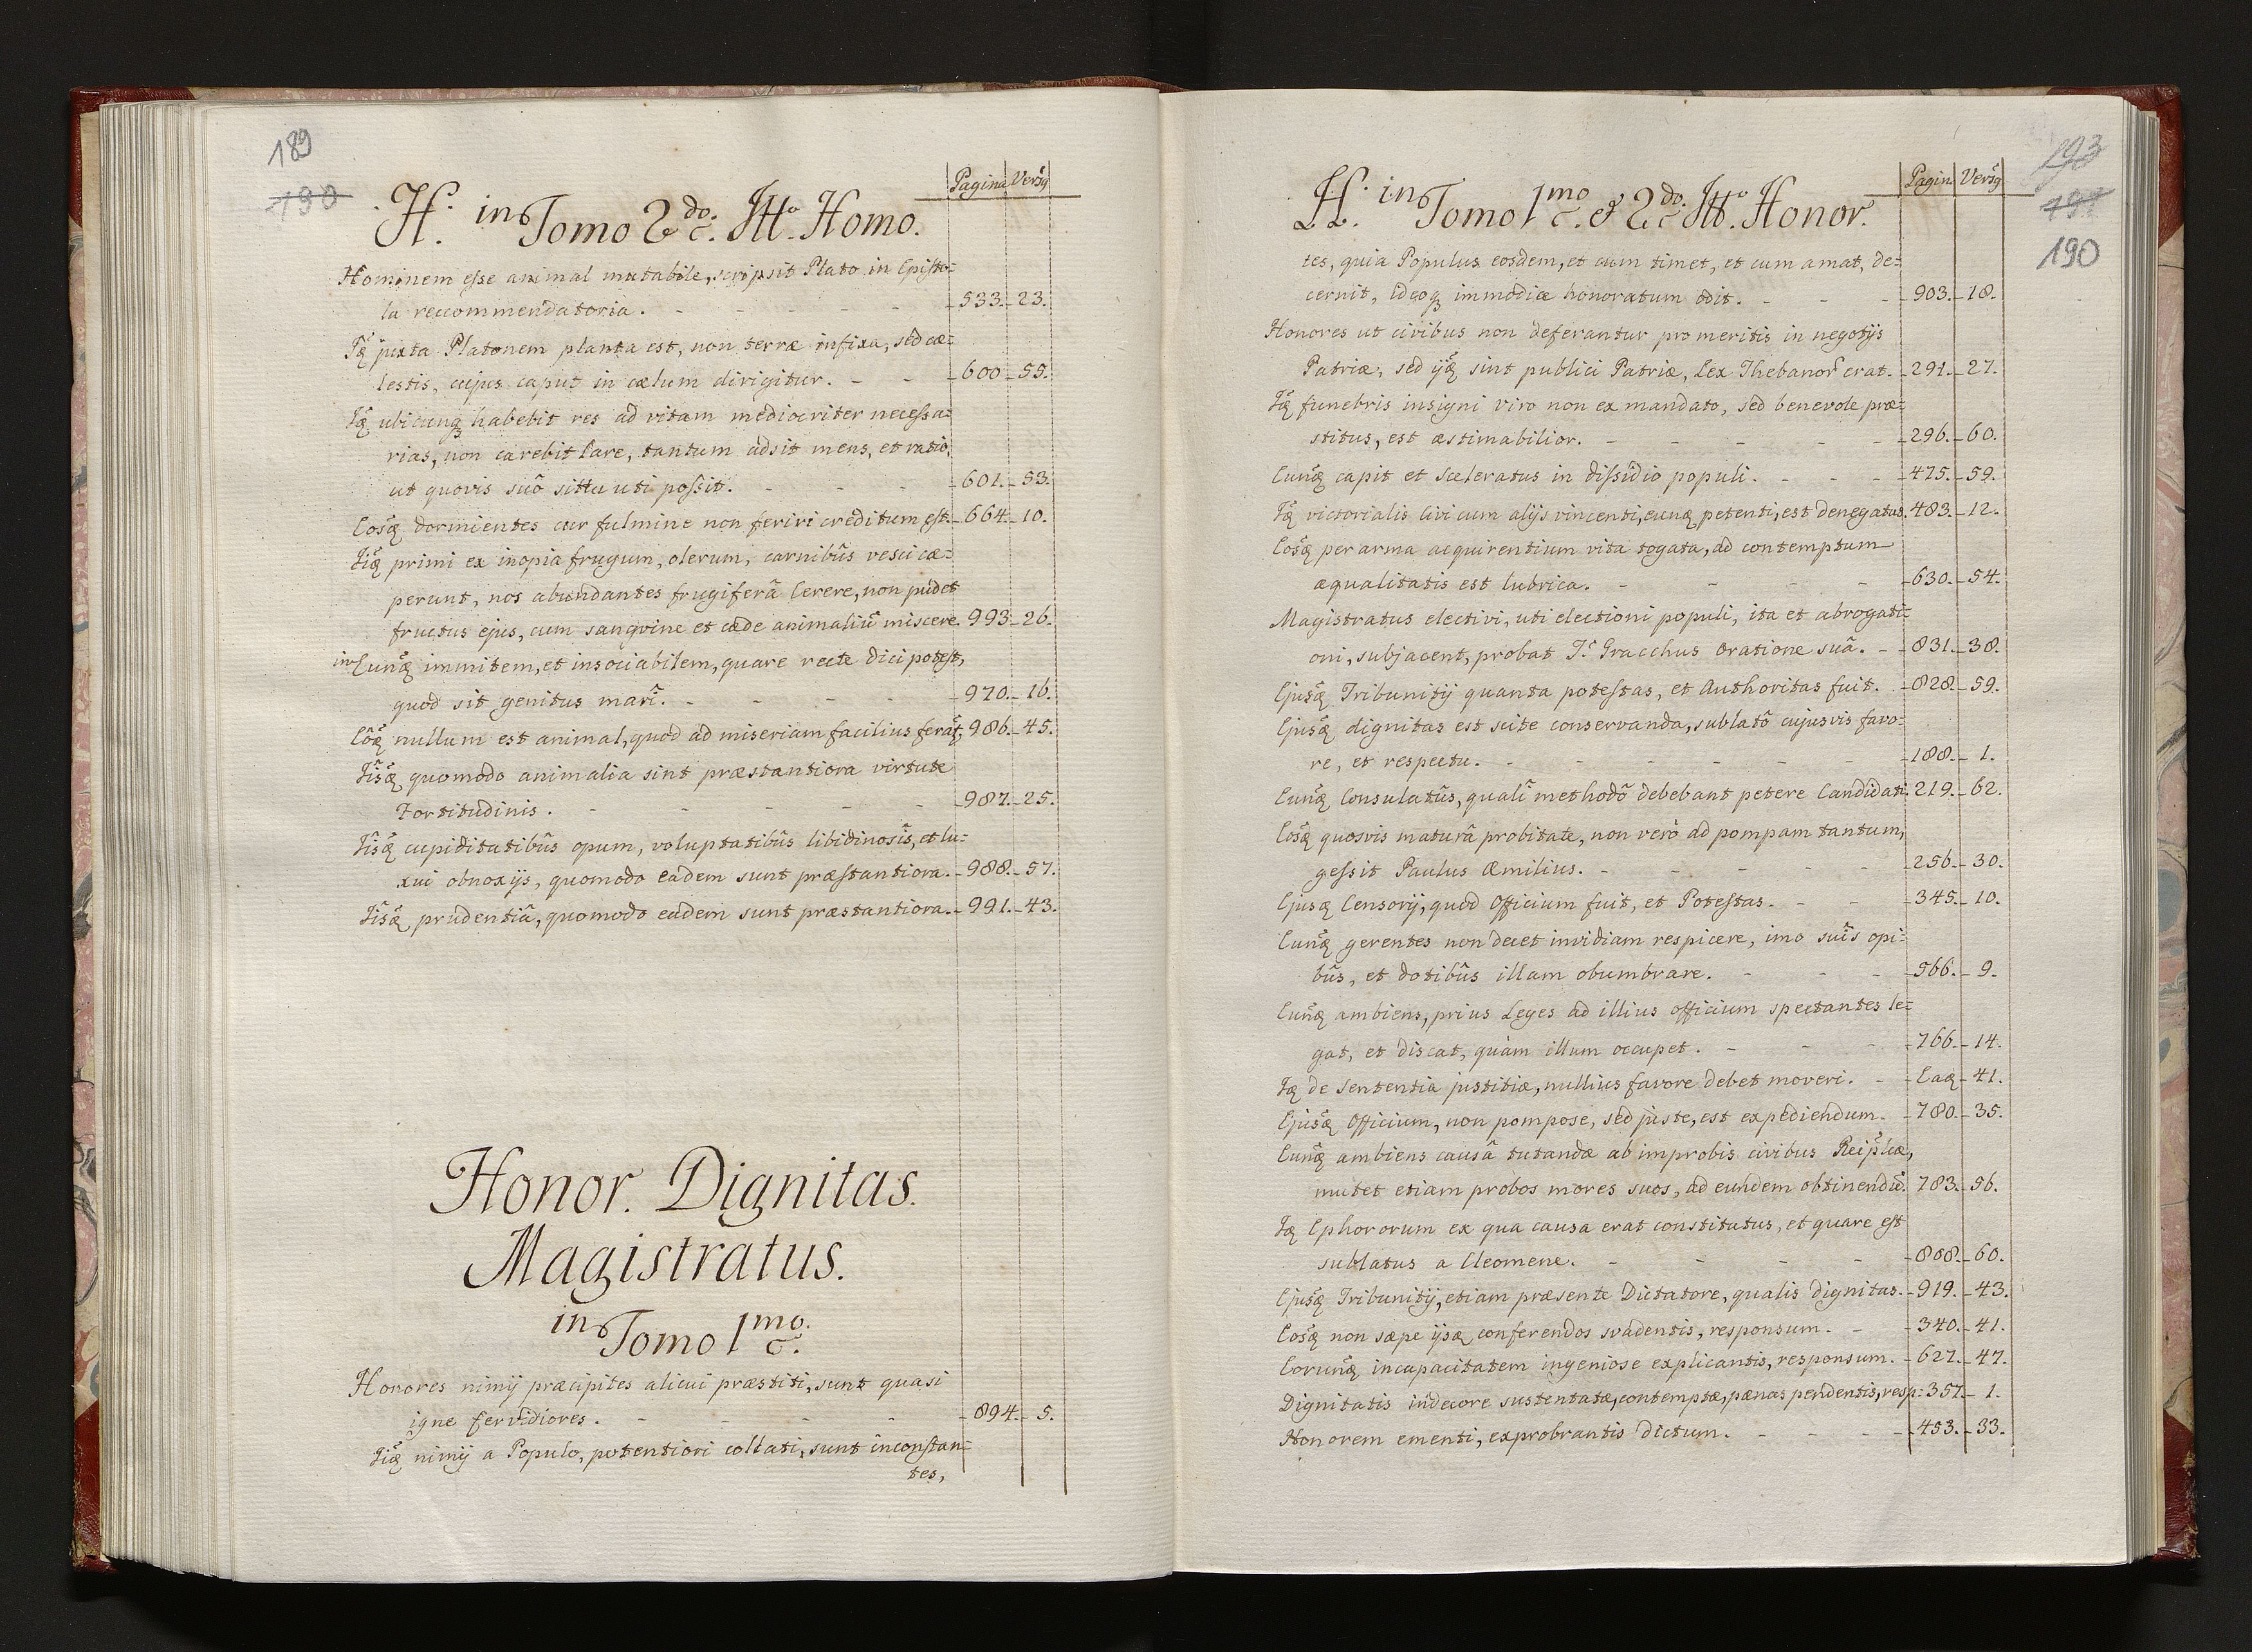 189
190
Pagina Versq
H. in Tomo 2do. Itto Homo.
Hominem esse animal mutabile, scripsit Plato in Episto=
la reccommendatoria. - - - - - 533. - 23.
Iq juxta Platonem planta est, non terræ infixa, sed cæ=
lestis, cujus caput in cœlum dirigitur. - - - 600 - 55.
Iq ubicunq habebit res ad vitam mediocriter necessa=
rias, non carebit Lare, tantum adsit mens, et ratio,
ut quovis suô situ uti possit. - - - 601. - 53.
Eosq dormientes cur fulmine non feriri creditum est. - 664. - 10.
Iiq primi ex inopia frugum, olerum, carnibûs vesci cæ=
perunt, nos abundantes frugiferâ Cerere, non pudet
fructus ejus, cum sangvine et cæde animaliũ miscere. 993 - 26.
Eunq immitem, et insociabilem, quare recte dici potest,
quod sit genitus marî. - - - - 970. - 16.
Eôq nullum est animal, quod ad miseriam facilius ferat, 986. - 45.
Iisq quomodo animalia sint præstantiora virtute
Fortitudinis. - - - - - 987. - 25.
Iisq cupiditatibûs opum, voluptatibûs libidinosîs, et lu=
xui obnoxijs, quomodo eadem sunt præstantiora. - 988. - 57.
Iisq prudentiâ, quomodo eadem sunt præstantiora. - 991. - 43.
Honor. Dignitas.
Magistratus.
in Tomo 1mo.
Honores nimij præcipites alicui præstiti, sunt quasi
igne fervidiores. - - - - - 894. - 5.
Iiq nimij a Populo, potentiori collati, sunt inconstan=
tes,
193
190
Pagin Versq
H. in Tomo 1mo. & 2do Itto. Honor.
tes, quia Populus eosdem, et cum timet, et cum amat, de=
cernit, ideoq immodice honoratum odit. - - - 903. - 18.
Honores ut civibus non deferantur pro meritis in negotijs
Patriæ, sed ijq sint publici Patriæ, Lex Thebanor erat. - 291. - 27.
Iq funebris insigni viro non ex mandato, sed benevole præ=
stitus, est æstimabilior. - - - - - 296. - 60.
Eunq capit et Sceleratus in dissidio populi. - - - 475. - 59.
Iq victorialis civi cum alijs vincenti, eunq petenti, est denegatus. 483. - 12.
Eosq per arma acquirentium vita togata, ad contemptum
æqualitatis est lubrica. - - - - 630. - 54.
Magistratus electivi, uti electioni populi, ita et abrogati=
oni, subjacent, probat T. Gracchus Oratione suâ. - - 831. - 38.
Ejusq Tribunitij quanta potestas, et Authoritas fuit. - 828. - 59.
Ejusq dignitas est scite conservanda, sublatô cujusvis favo=
re, et respectu. - - - - - - 188. - 1.
Eunq Consulatûs, qualî methodô debebant petere Candidati. 219. - 62.
Eosq quosvis maturâ probitate, non verò ad pompam tantum,
gessit Paulus Æmilius. - - - - - 256. - 30.
Ejusq Censorij, quod Officium fuit, et Potestas. - - 345. - 10.
Eunq gerentes non decet invidiam respicere, imo suîs opi=
bûs, et dotibûs illam obumbrare. - - - 566. - 9.
Eunq ambiens, prius Leges ad illius officium spectantes le=
gat, et discat, quàm illum occupet. - - - 766. - 14.
Iq de Sententia justitiæ, nullius favore debet moveri. - Eaq - 41.
Ejusq Officium, non pompose, sed juste, est expediendum. - 780. - 35.
Eunq ambiens causâ tutandæ ab improbis civibus Reiplicæ,
mutet etiam probos mores suos, ad eundem obtinendũ. 783. - 56.
Iq Ephororum ex qua causa erat constitutus, et quare est
sublatus a Cleomene. - - - - 808. - 60.
Ejusq Tribunitij, etiam præsente Dictatore, qualis dignitas. - 919. - 43.
Eosq non sæpe ijsq conferendos svadentis, responsum. - - 340. - 41.
Eorunq incapacitatem ingeniose explicantis, responsum. - 627. - 47.
Dignitatis indecore sustentatæ, contemptæ, pœnas pendentis, resp: 357. - 1.
Honorem ementi, exprobrantis dictum. - - - - 453. - 33.